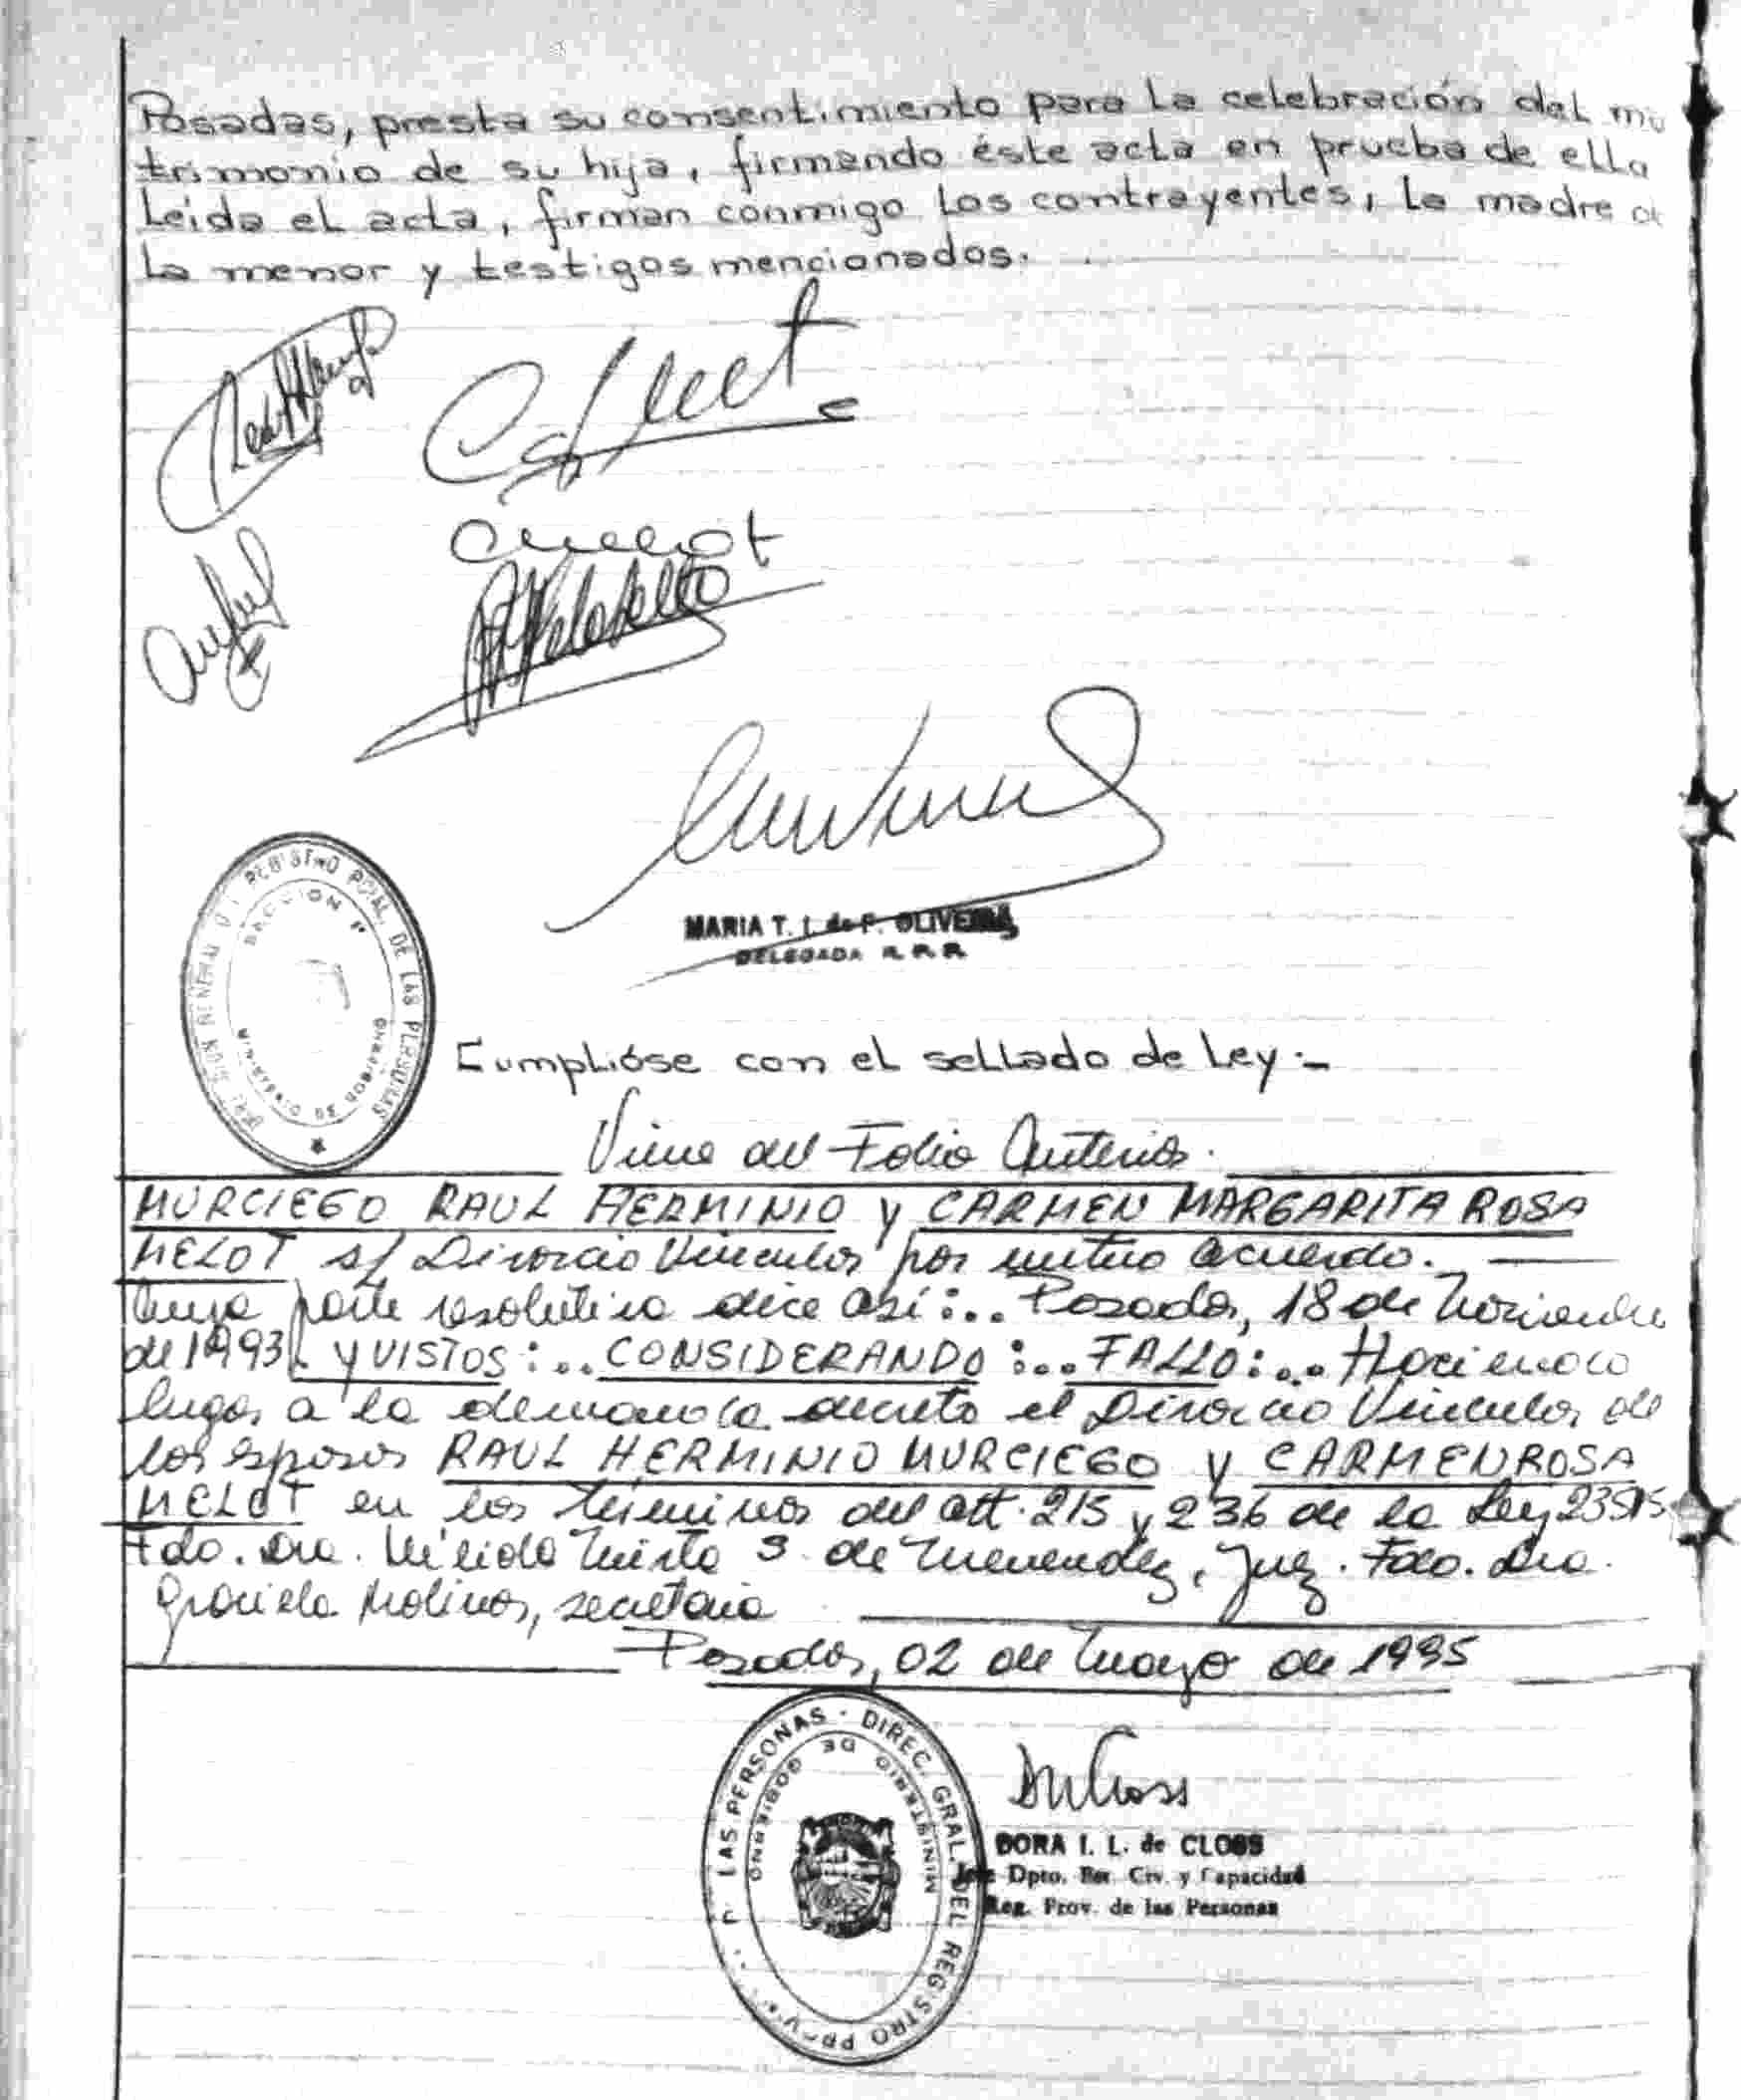 Posadas, presta su consentimiento para la celebración del ma
trimonio de su hija, firmando éste acta en prueba de ello
Leida el acta, firman conmigo los contrayentes, la madre de
la menor y testigos mencionados.
Melot
MARIA T. I. de F. OLIVEIRA
DELEGADA R.P.P.
REGISTRO PCIAL. DE LAS PERSONAS
MINISTERIO DE GOBIERNO
Cumplióse con el sellado de Ley:-
Viene del Folio Anterior.
MURCIEGO RAUL HERMINIO y CARMEN MARGARITA ROSA
MELOT s/ Divorcio Vincular por mutuo acuerdo.
Cuya parte resolutiva dice así:.. Posadas, 18 de Noviembre
de 1993. Y VISTOS:.. CONSIDERANDO:.. FALLO:.. Haciendo
lugar a la demanda decreto el Divorcio Vincular de
los esposos RAUL HERMINIO MURCIEGO y CARMEN ROSA
MELOT en los términos del art. 215 y 236 de la Ley 23515
Fdo. Dra. S. de Menendez, Juez. Fdo. Dra.
Graciela Molinas, secretaria
Posadas, 02 de Mayo de 1995
DIREC. GRAL. DEL REGISTRO PROV. DE LAS PERSONAS
MINISTERIO DE GOBIERNO
DORA I. L. de CLOSS
Jefe Dpto. Est. Civ. y Capacidad
Reg. Prov. de las Personas